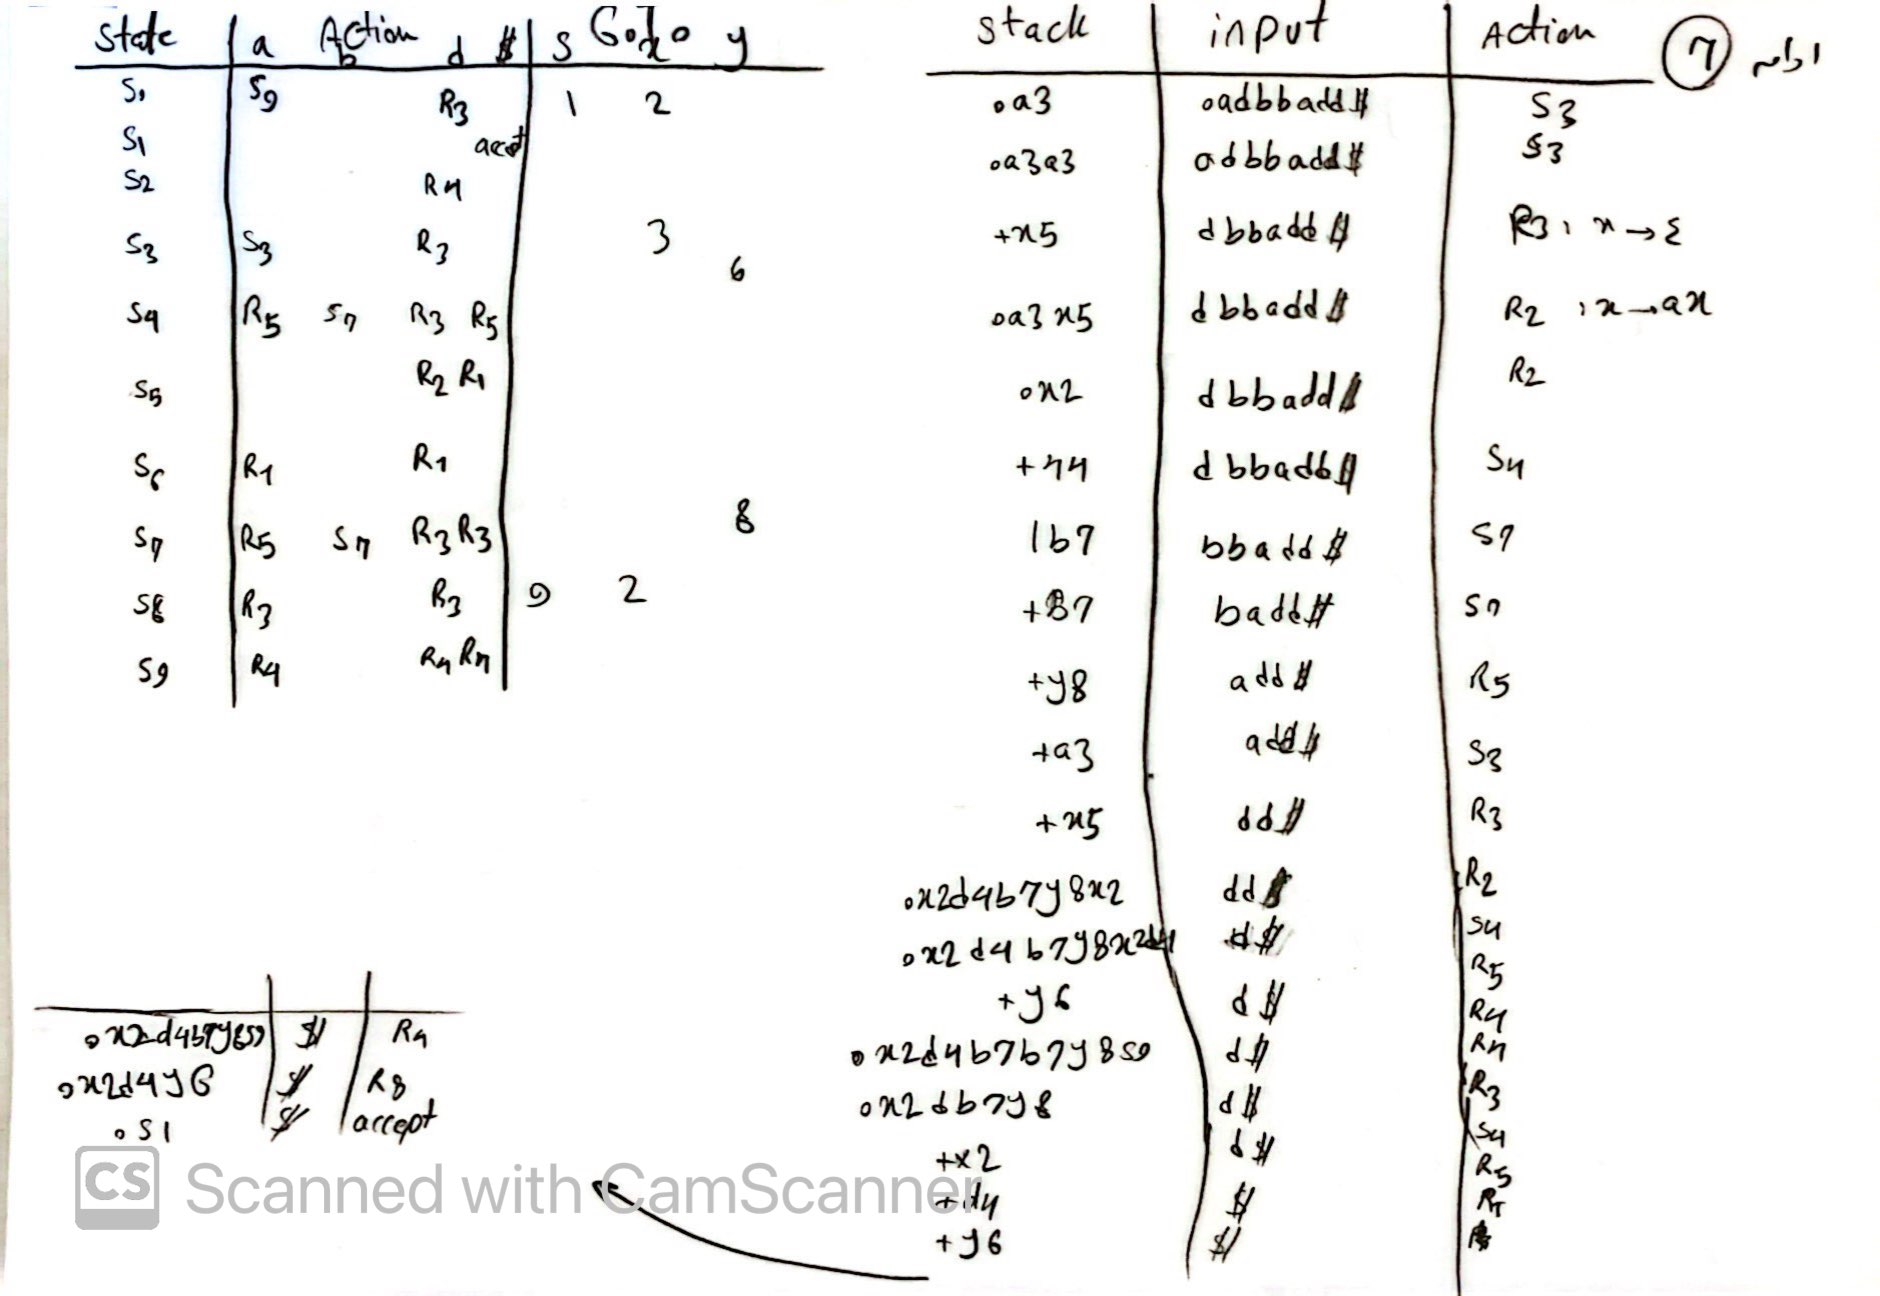 State a Action b d $ S Goto x y
S. S9 R3 1 2
S1 accept
S2 R4
S3 S3 R3 3
6
S4 R5 S7 R3 R5
S5 R2 R1
S6 R1 R1
8
S7 R5 S7 R3 R3
S8 R3 R3 9 2
S9 R4 R4 R4
Stack input Action
7
0a3 aadbbadd$ S3
0a3a3 adbbadd$ S3
+x5 dbbadd$ R3: x→ε
0a3x5 dbbadd$ R2: x→ax
0x2 dbbadd$ R2
+44 dbbadd$ S4
1b7 bbadd$ S7
+B7 badd$ S7
+y8 add$ R5
+a3 add$ S3
+x5 dd$ R3
0x2d4b7y8x2 dd$ R2
0x2d4b7y8x2d4 d$ S4
R5
+y6 d$ R4
0x2d4b7b7y8s9 d$ R4
0x2db7y8 d$ R3
+x2 d$ S4
R5
+d4 $
+y6 $
0x2d4b7y8s9 $ R4
0x2d4y6 $ R8
0S1 $ accept
CS Scanned with CamScanner